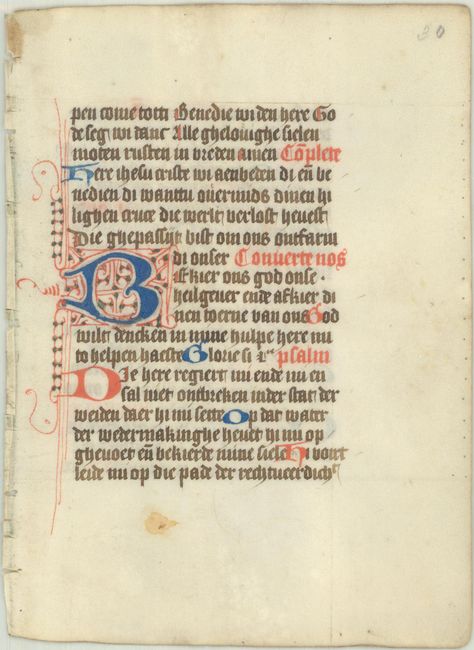 30
pen come totti Benedie wi den here Go
de seg wi danc Alle gheloiuighe sielen
moten rusten in vreden amen Cōplete
Here ihesu criste wi aenbeden di en̄ be
nedien di wanttu ouermids dinen hi
lighen cruce die werlt verlost heuest
Die ghepassijt bist om ons ontfarm
di onser Conuerte nos
Bekier ons god onse
heilgeuer ende afkier di
nen toerne van ons God
wilt dencken in mine hulpe here mi
to helpen haeste Glorie si psalm
Die here regiert mi ende mi en
sal niet ontbreken inder stat der
weiden daer hi mi sette Op dat water
der wedermakinghe heuet hi mi op
gheuoet en̄ bekierde mine siele Hi voirt
leide mi op die pade der rechtuerdich